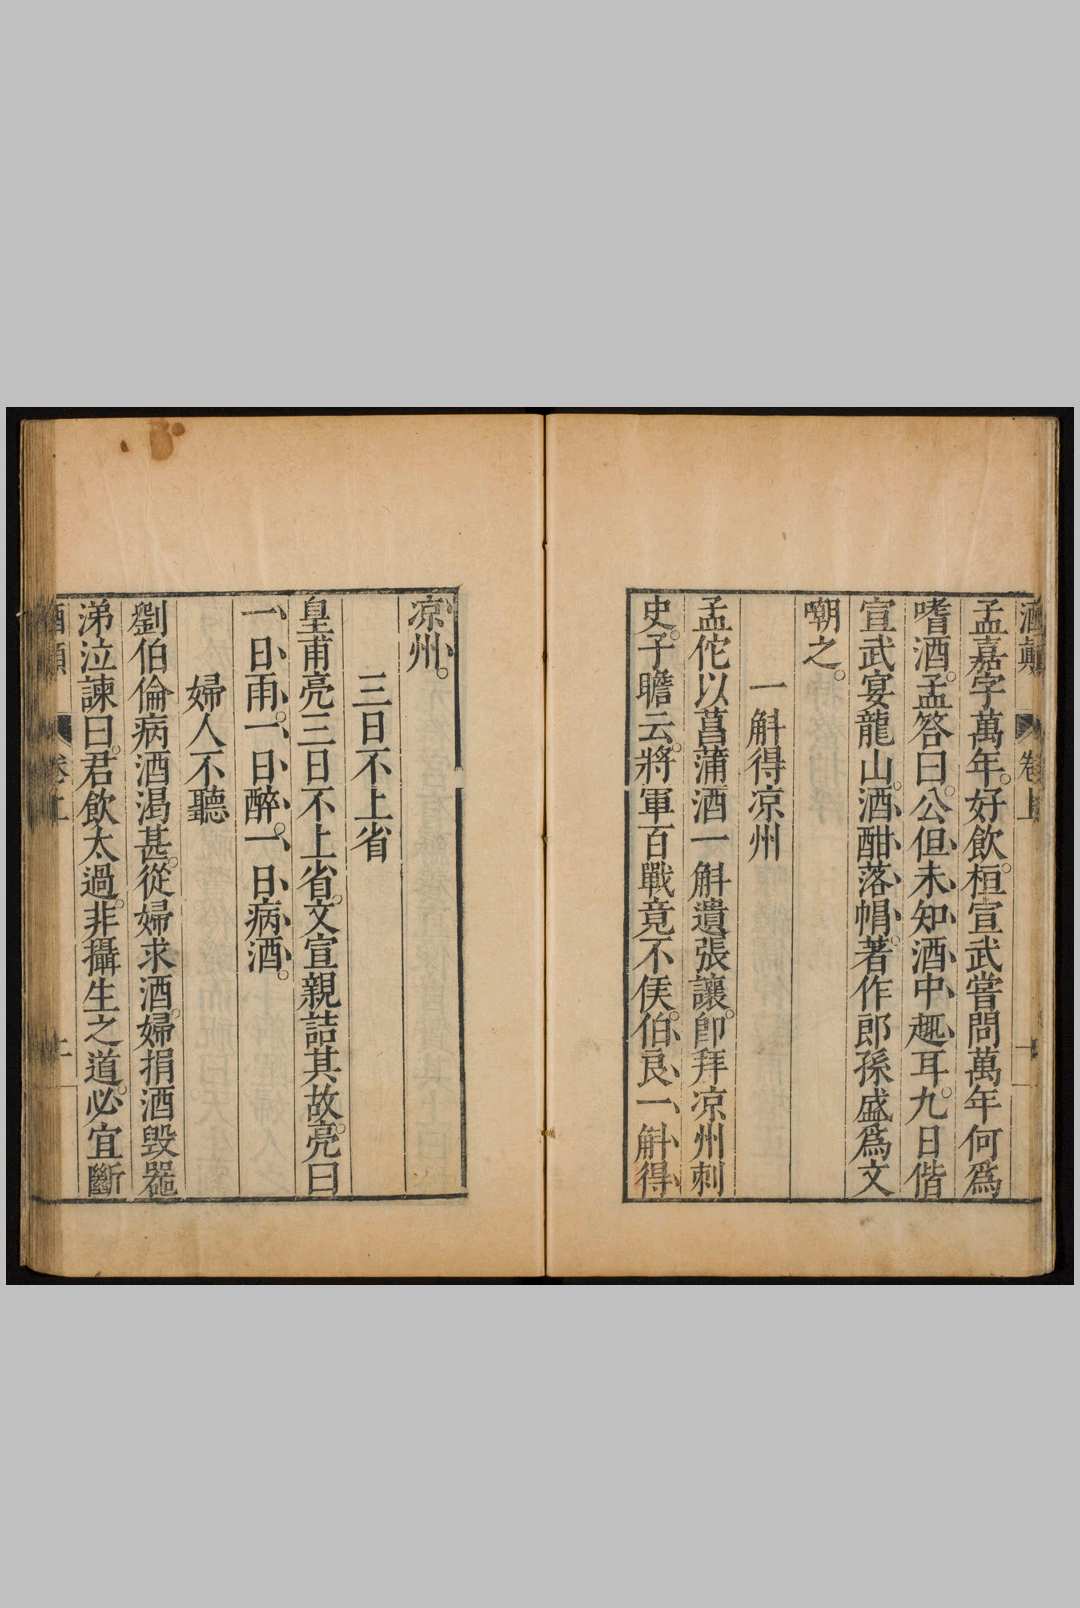 酒顛 卷上
孟嘉字萬年。好飲。桓宣武嘗問萬年何爲
嗜酒。孟答曰。公但未知酒中趣耳。九日偕
宣武宴龍山。酒酣落帽。著作郎孫盛爲文
嘲之。
一斛得凉州
孟佗以菖蒲酒一斛遺張讓。卽拜凉州刺
史。子瞻云。將軍百戰竟不侯。伯良一斛得
凉州。
三日不上省
皇甫亮三日不上省。文宣親詰其故。亮曰
一日雨。一日醉。一日病酒。
婦人不聽
劉伯倫病酒渴甚。從婦求酒。婦捐酒毀噐
涕泣諫曰。君飲太過。非攝生之道。必宜斷
酒顛 卷上